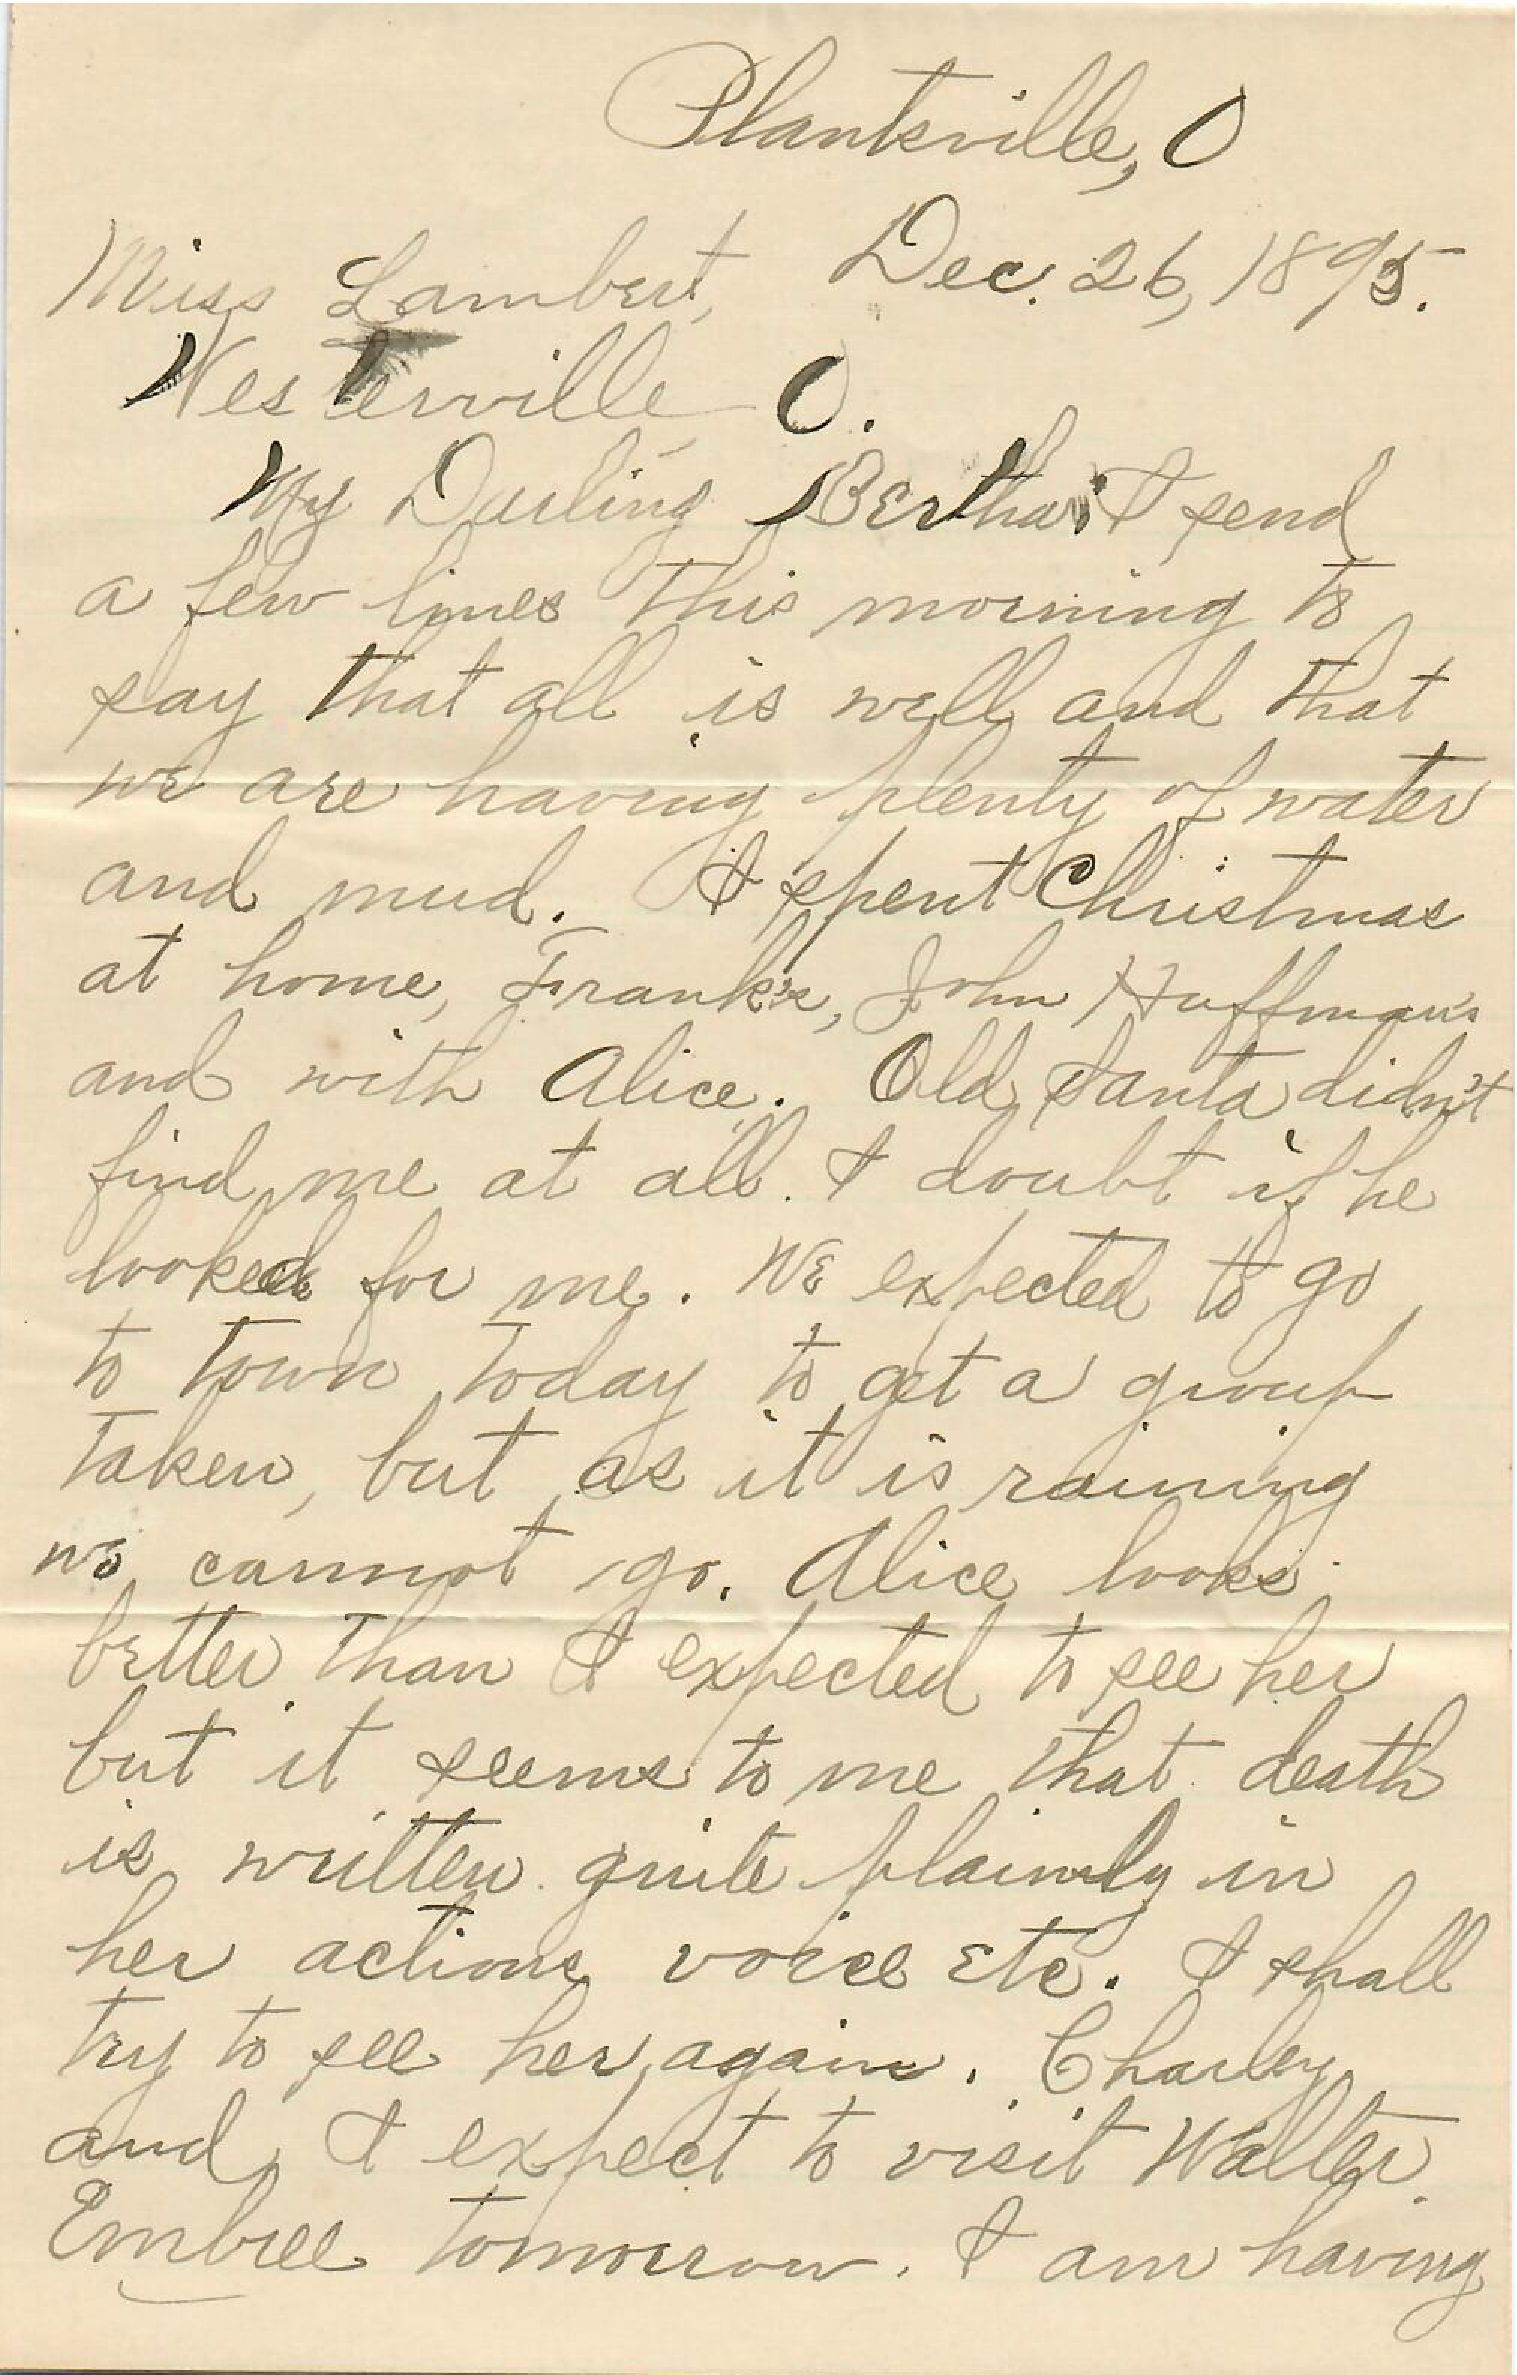 Plantsville, O
Dec. 26, 1895.
Miss Lambert,
Westerville O.
My Darling Bertha: I send
a few lines this morning to
say that all is well and that
we are having plenty of water
and mud. I spent Christmas
at home, Frank's, John Huffman's
and with Alice. Old Santa didn't
find me at all. I doubt if he
looked for me. We expected to go
to town today to get a group
taken, but as it is raining
we cannot go. Alice looks
better than I expected to see her
but it seems to me that death
is written quite plainly in
her actions, voice etc. I shall
try to see her again. Charley
and I expect to visit Walter
Embree tomorrow. I am having